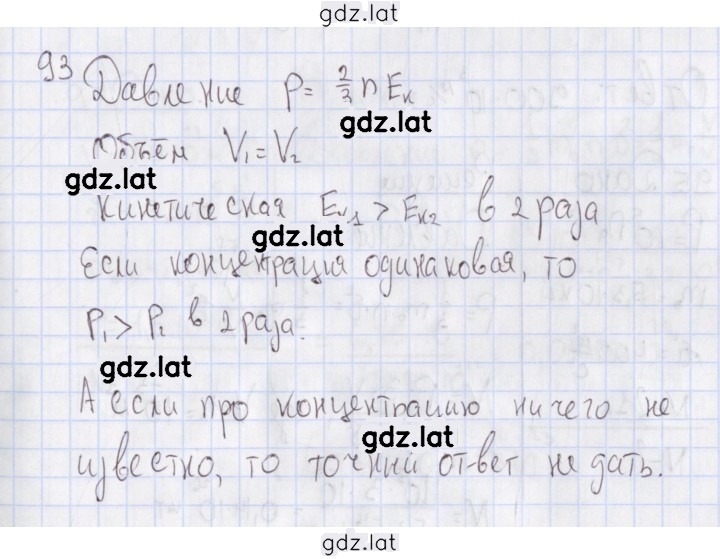 gdz.lat
93
Давление P = 2/3 n Eк
gdz.lat
Объём V₁ = V₂
gdz.lat
Кинетическая Eк₁ > Eк₂ в 2 раза
gdz.lat
Если концентрация одинаковая, то
P₁ > P₂ в 2 раза.
gdz.lat
А если про концентрацию ничего не
gdz.lat
известно, то точний ответ не дать.
gdz.lat